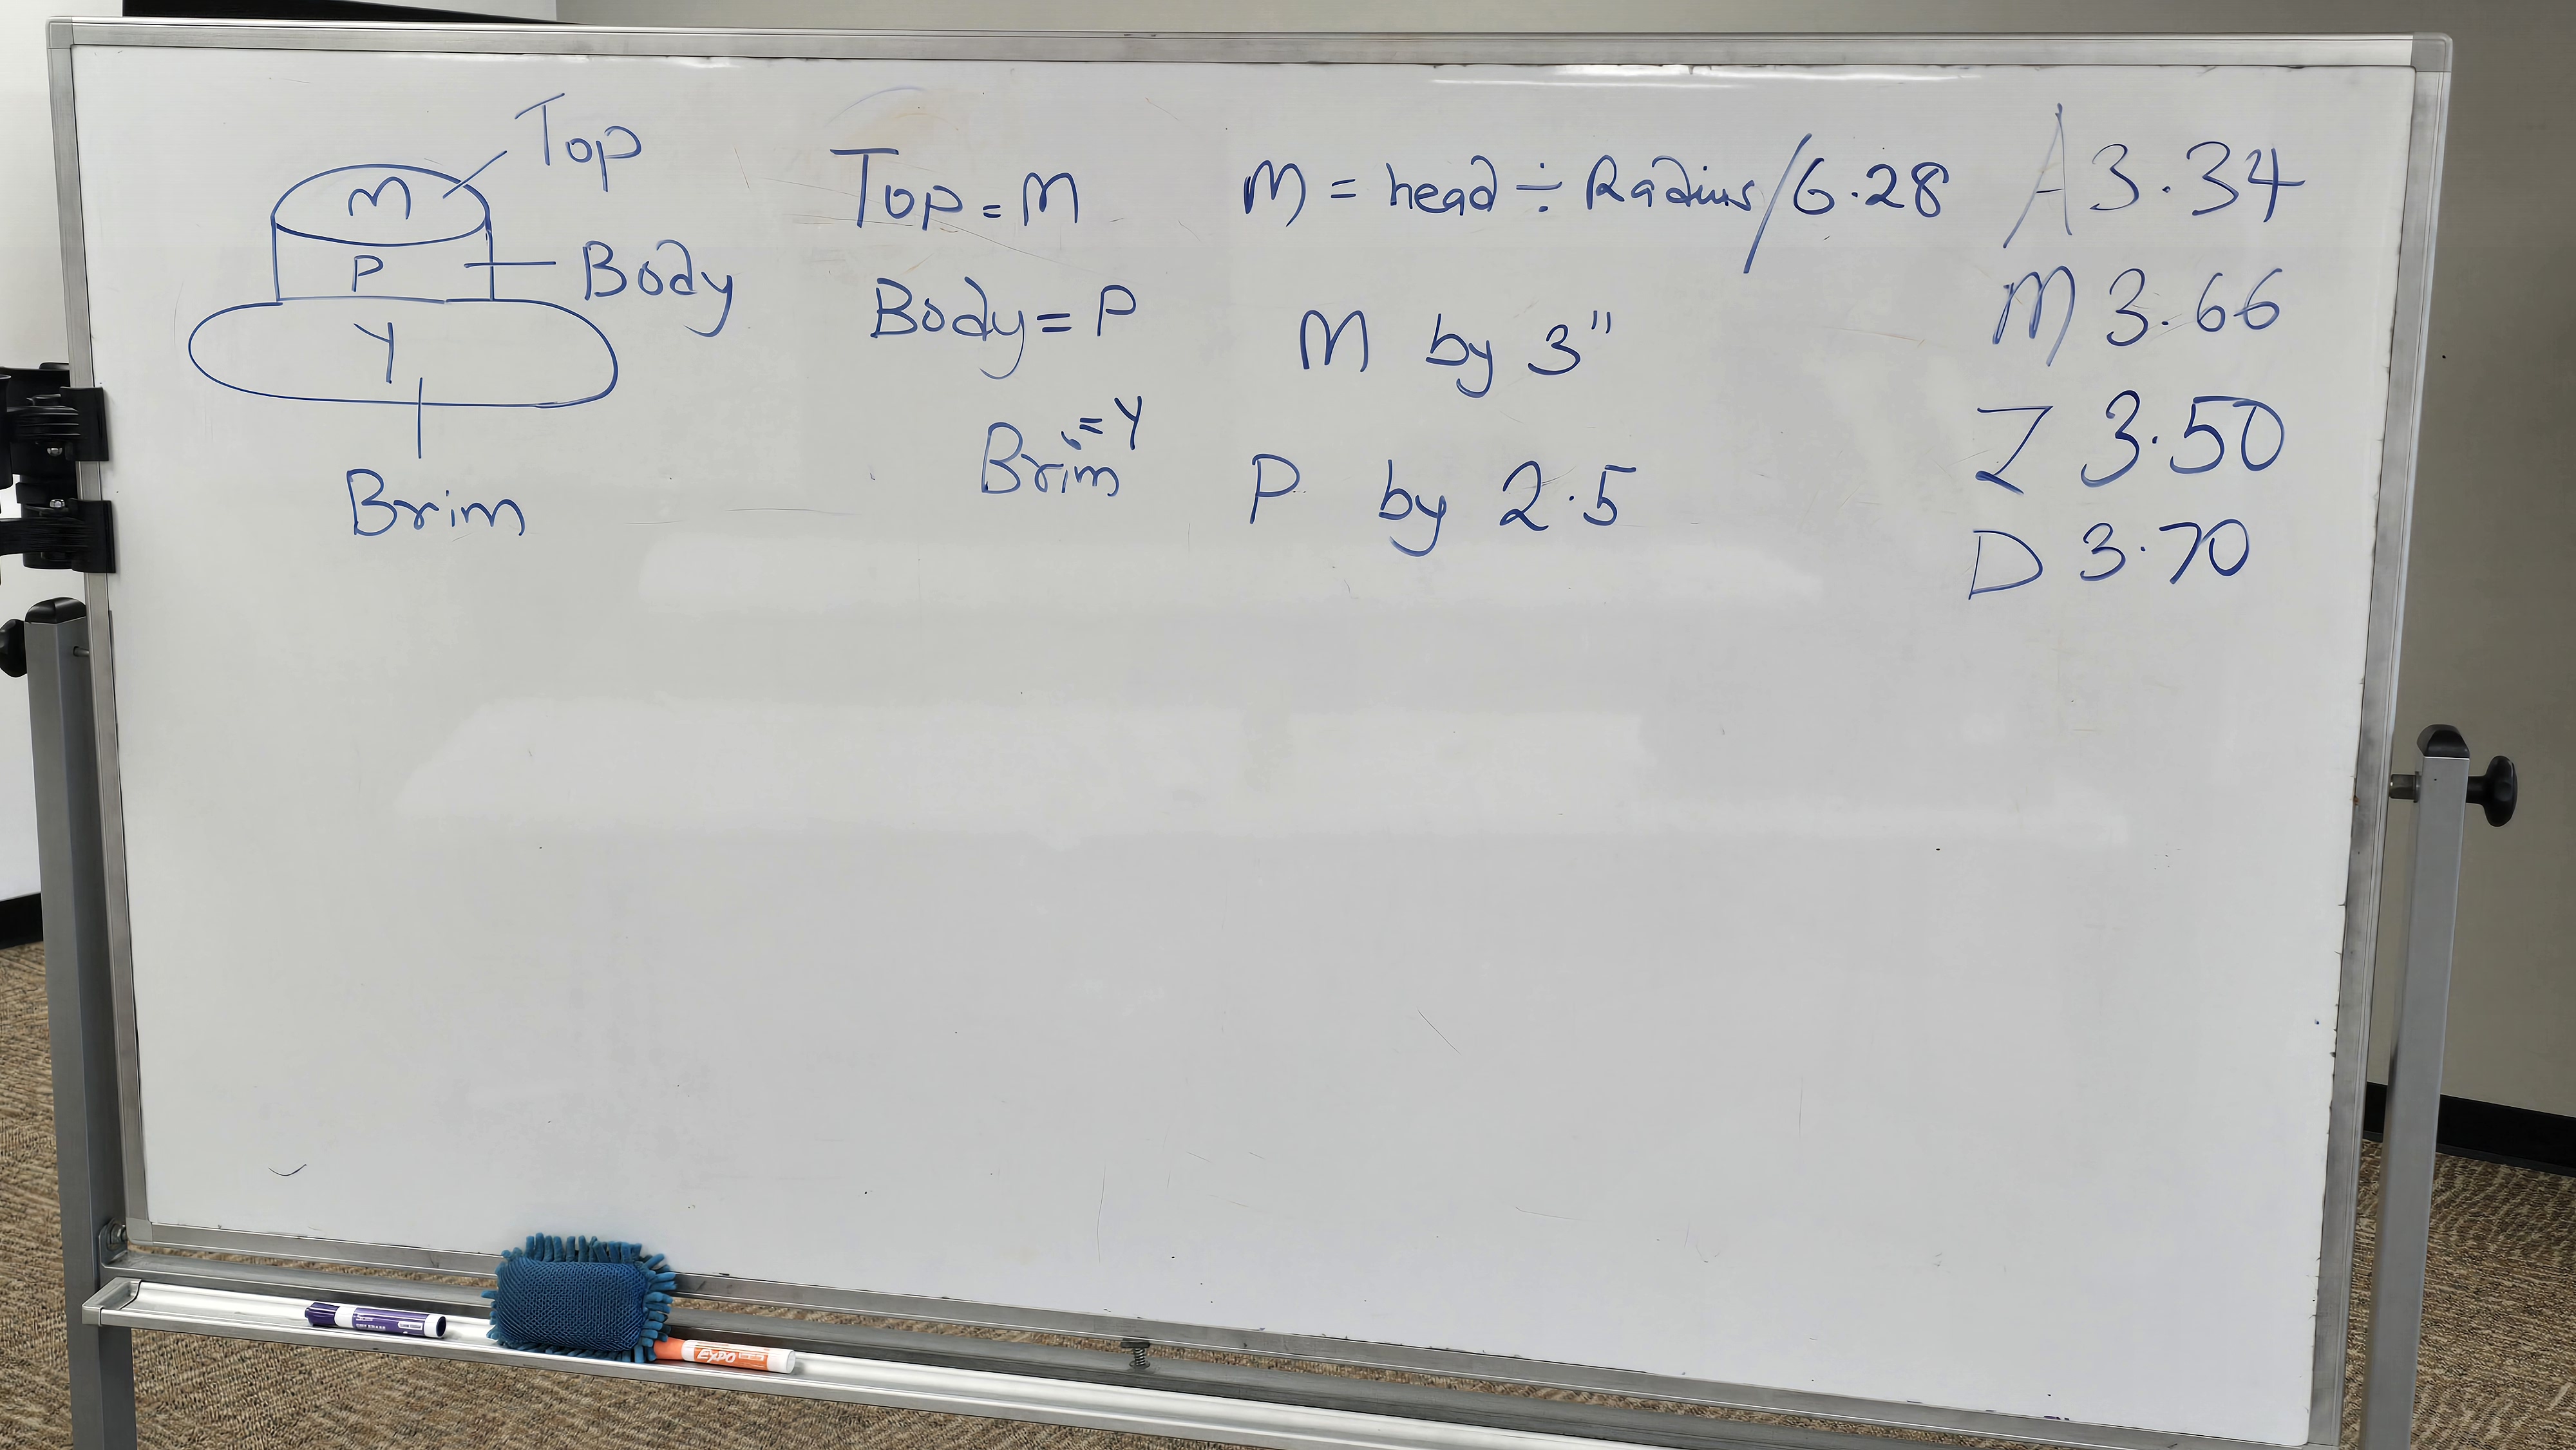 Top
M
P
Body
Y
Brim
Top = M
Body = P
Brim = Y
M = head ÷ Radius / 6.28
M by 3"
P by 2.5
A 3.34
M 3.66
Z 3.50
D 3.70
EXPO